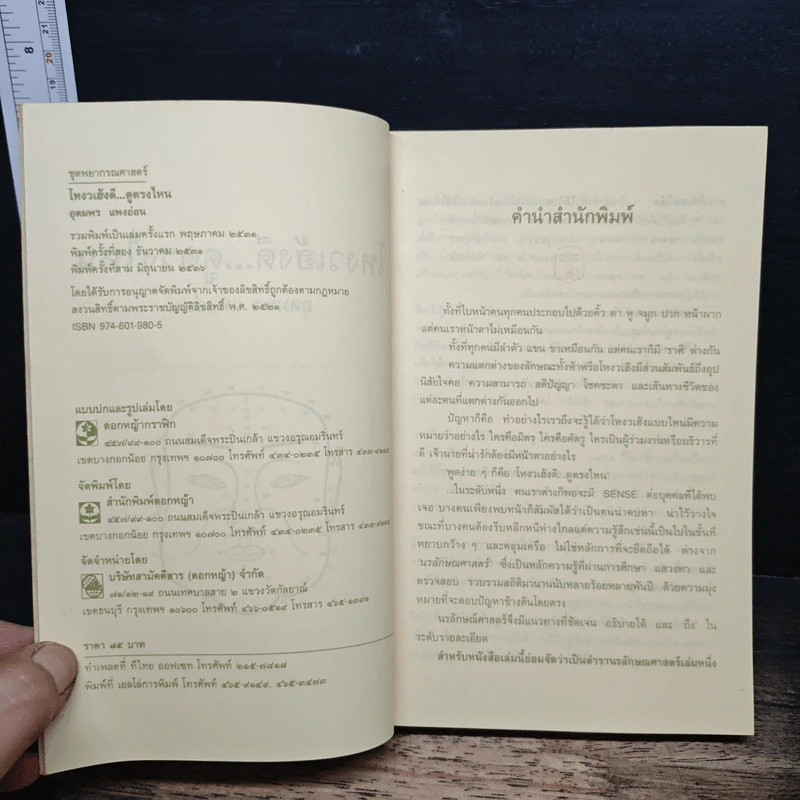 8
19
20
21
ชุดพยากรณศาสตร์
โหงวเฮ้งดี...ดูตรงไหน
อุดมพร แพงอ่อน
รวมพิมพ์เป็นเล่มครั้งแรก พฤษภาคม ๒๕๓๑
พิมพ์ครั้งที่สอง ธันวาคม ๒๕๓๑
พิมพ์ครั้งที่สาม มิถุนายน ๒๕๓๖
โดยได้รับการอนุญาตจัดพิมพ์จากเจ้าของลิขสิทธิ์ถูกต้องตามกฎหมาย
สงวนสิทธิ์ตามพระราชบัญญัติลิขสิทธิ์ พ.ศ. ๒๕๒๑
ISBN 974-601-980-5
แบบปกและรูปเล่มโดย
ดอกหญ้ากราฟิก
๔๕๗/๙๙-๑๐๐ ถนนสมเด็จพระปิ่นเกล้า แขวงอรุณอมรินทร์
เขตบางกอกน้อย กรุงเทพฯ ๑๐๗๐๐ โทรศัพท์ ๔๓๔-๐๒๓๕ โทรสาร
จัดพิมพ์โดย
สำนักพิมพ์ดอกหญ้า
๔๕๗/๙๙-๑๐๐ ถนนสมเด็จพระปิ่นเกล้า แขวงอรุณอมรินทร์
เขตบางกอกน้อย กรุงเทพฯ ๑๐๗๐๐ โทรศัพท์ ๔๓๔-๐๒๓๕ โทรสาร
จัดจำหน่ายโดย
บริษัทสามัคคีสาร (ดอกหญ้า) จำกัด
๗๑/๑๒-๑๙ ถนนเทศบาลสาย ๒ แขวงวัดกัลยาณ์
เขตธนบุรี กรุงเทพฯ ๑๐๖๐๐ โทรศัพท์ ๔๖๖-๐๕๑๙ โทรสาร ๔๖๕-๑๓๙๑
ราคา ๘๕ บาท
ทำเพลตที่ ทีไทย ออฟเซท โทรศัพท์ ๒๑๕-๗๘๑๘
พิมพ์ที่ เยลโล่การพิมพ์ โทรศัพท์ ๔๖๕-๙๑๔๙, ๔๖๕-๓๕๗๓
คำนำสำนักพิมพ์
ทั้งที่ใบหน้าคนทุกคนประกอบไปด้วยคิ้ว ตา หู จมูก ปาก หน้าผาก
แต่คนเราหน้าตาไม่เหมือนกัน
ทั้งที่ทุกคนมีลำตัว แขน ขาเหมือนกัน แต่คนเราก็มี 'ราศี' ต่างกัน
ความแตกต่างของลักษณะทั้งห้าหรือโหงวเฮ้งมีส่วนสัมพันธ์ถึงอุป
นิสัยใจคอ ความสามารถ สติปัญญา โชคชะตา และเส้นทางชีวิตของ
แต่ละคนที่แตกต่างกันออกไป
ปัญหาก็คือ ทำอย่างไรเราถึงจะรู้ได้ว่าโหงวเฮ้งแบบไหนมีความ
หมายว่าอย่างไร ใครคือมิตร ใครคือศัตรู ใครเป็นผู้ร่วมงานหรือบริวารที่
ดี เจ้านายที่น่ารักต้องมีหน้าตาอย่างไร
พูดง่าย ๆ ก็คือ 'โหงวเฮ้งดี...ดูตรงไหน'
...ในระดับหนึ่ง คนเราต่างก็พอจะมี SENSE ต่อบุคคลที่ได้พบ
เจอ บางคนเพียงพบหน้าก็สัมผัสได้ว่าเป็นคนน่าคบหา น่าไว้วางใจ
ขณะที่บางคนต้องรีบหลีกหนีห่างไกลแต่ความรู้สึกเช่นนี้เป็นไปในชั้นที่
หยาบกว้าง ๆ และคลุมเครือ ไม่ใช่หลักการที่จะยึดถือได้ ต่างจาก
'นรลักษณ์ศาสตร์' ซึ่งเป็นหลักความรู้ที่ผ่านการศึกษา แสวงหา และ
ตรวจสอบ รวบรวมสถิติมานานนับหลายร้อยหลายพันปี ด้วยความมุ่ง
หมายที่จะตอบปัญหาข้างต้นโดยตรง
นรลักษณ์ศาสตร์จึงมีแนวทางที่ชัดเจน อธิบายได้ และ 'ถึง' ใน
ระดับรายละเอียด
สำหรับหนังสือเล่มนี้ย่อมจัดว่าเป็นตำรานรลักษณศาสตร์เล่มหนึ่ง